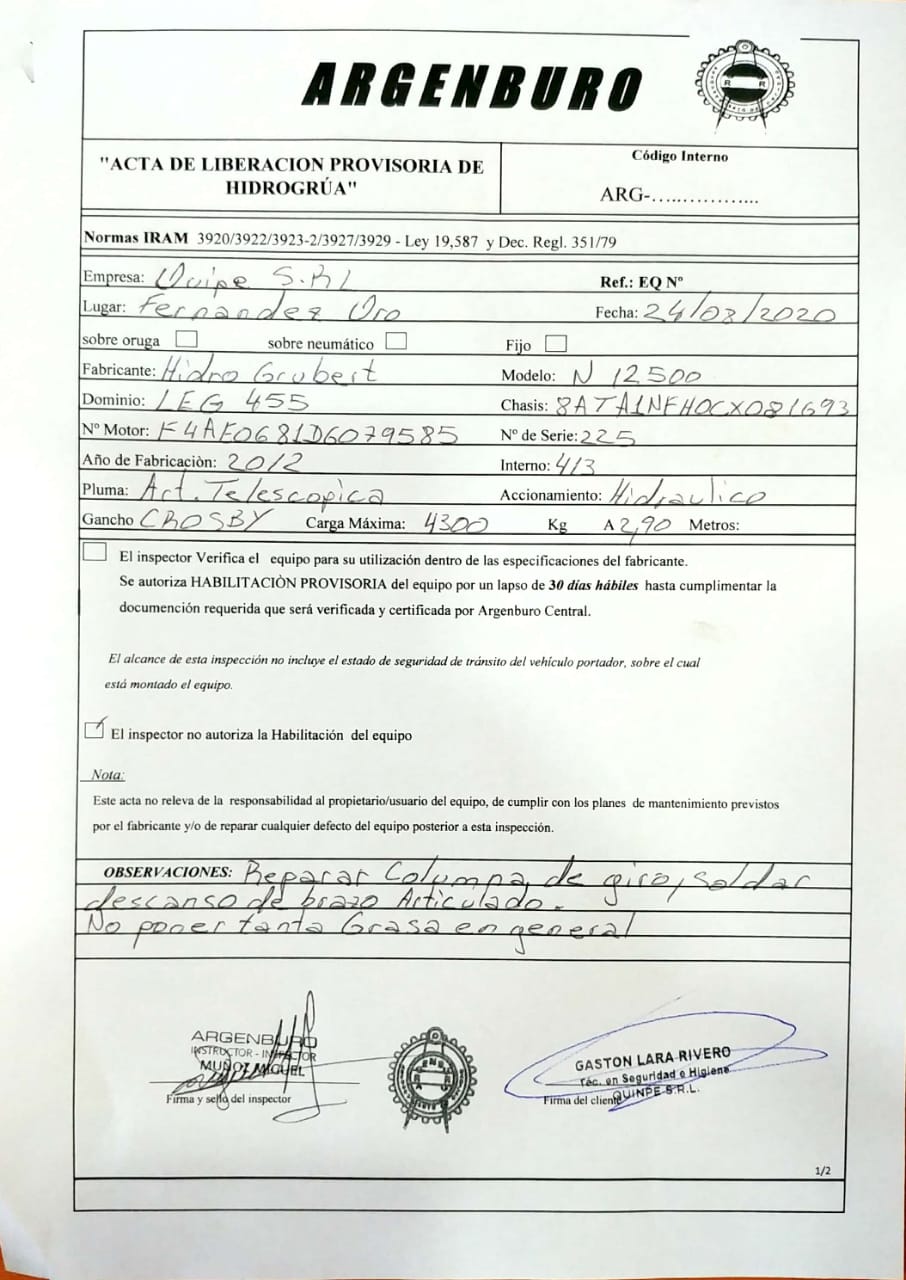 ARGENBURO
"ACTA DE LIBERACION PROVISORIA DE
HIDROGRÚA"
Código Interno
ARG-................
Normas IRAM 3920/3922/3923-2/3927/3929 - Ley 19,587 y Dec. Regl. 351/79
Empresa: Quipe S.RL Ref.: EQ Nº
Lugar: Fernandez Oro Fecha: 24/08/2020
sobre oruga sobre neumático Fijo
Fabricante: Hidro Grubert Modelo: N 12500
Dominio: LEG 455 Chasis: 8ATA1NFH0CX081693
Nº Motor: F4AE0681D6079585 Nº de Serie: 225
Año de Fabricaciòn: 2012 Interno: 413
Pluma: Art. Telescopica Accionamiento: Hidraulico
Gancho CROSBY Carga Máxima: 4300 Kg A 2,90 Metros:
El inspector Verifica el equipo para su utilización dentro de las especificaciones del fabricante.
Se autoriza HABILITACIÒN PROVISORIA del equipo por un lapso de 30 días hábiles hasta cumplimentar la
documención requerida que será verificada y certificada por Argenburo Central.
El alcance de esta inspección no incluye el estado de seguridad de tránsito del vehículo portador, sobre el cual
está montado el equipo.
El inspector no autoriza la Habilitación del equipo
Nota:
Este acta no releva de la responsabilidad al propietario/usuario del equipo, de cumplir con los planes de mantenimiento previstos
por el fabricante y/o de reparar cualquier defecto del equipo posterior a esta inspección.
OBSERVACIONES: Reparar Columna, de giro, Soldar
descanso de brazo Articulado.
No poner tanta Grasa en general
ARGENBURO
INSTRUCTOR - INSPECTOR
MUÑOZ MIGUEL
Firma y sello del inspector
GASTON LARA RIVERO
Téc. en Seguridad e Higiene
QUINPE S.R.L.
Firma del cliente
1/2